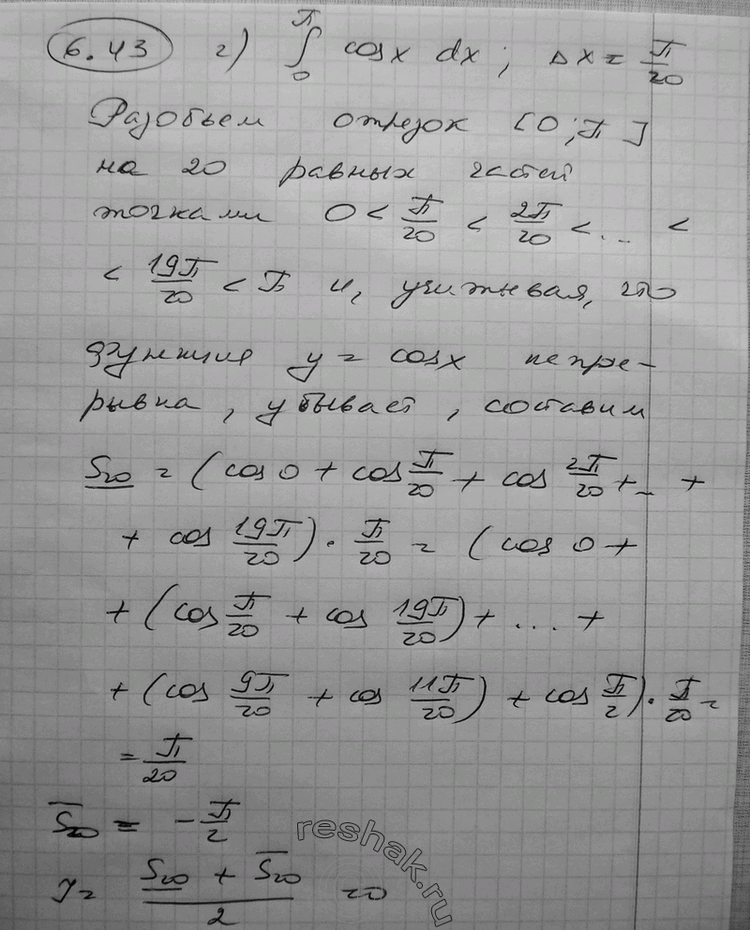 6.43 г) ∫₀^π cosx dx; Δx = π/20
Разобьем отрезок [0; π]
на 20 равных частей
точками 0 < π/20 < 2π/20 < ... <
< 19π/20 < π и, учитывая, что
функция y = cosx непре-
рывна, убывает, составим
S̲₂₀ = (cos 0 + cos π/20 + cos 2π/20 + ... +
+ cos 19π/20) · π/20 = (cos 0 +
+ (cos π/20 + cos 19π/20) + ... +
+ (cos 9π/20 + cos 11π/20) + cos π/2) · π/20 =
= π/20
S̅₂₀ = -π/2
J = (S̲₂₀ + S̅₂₀)/2 = 0
reshak.ru